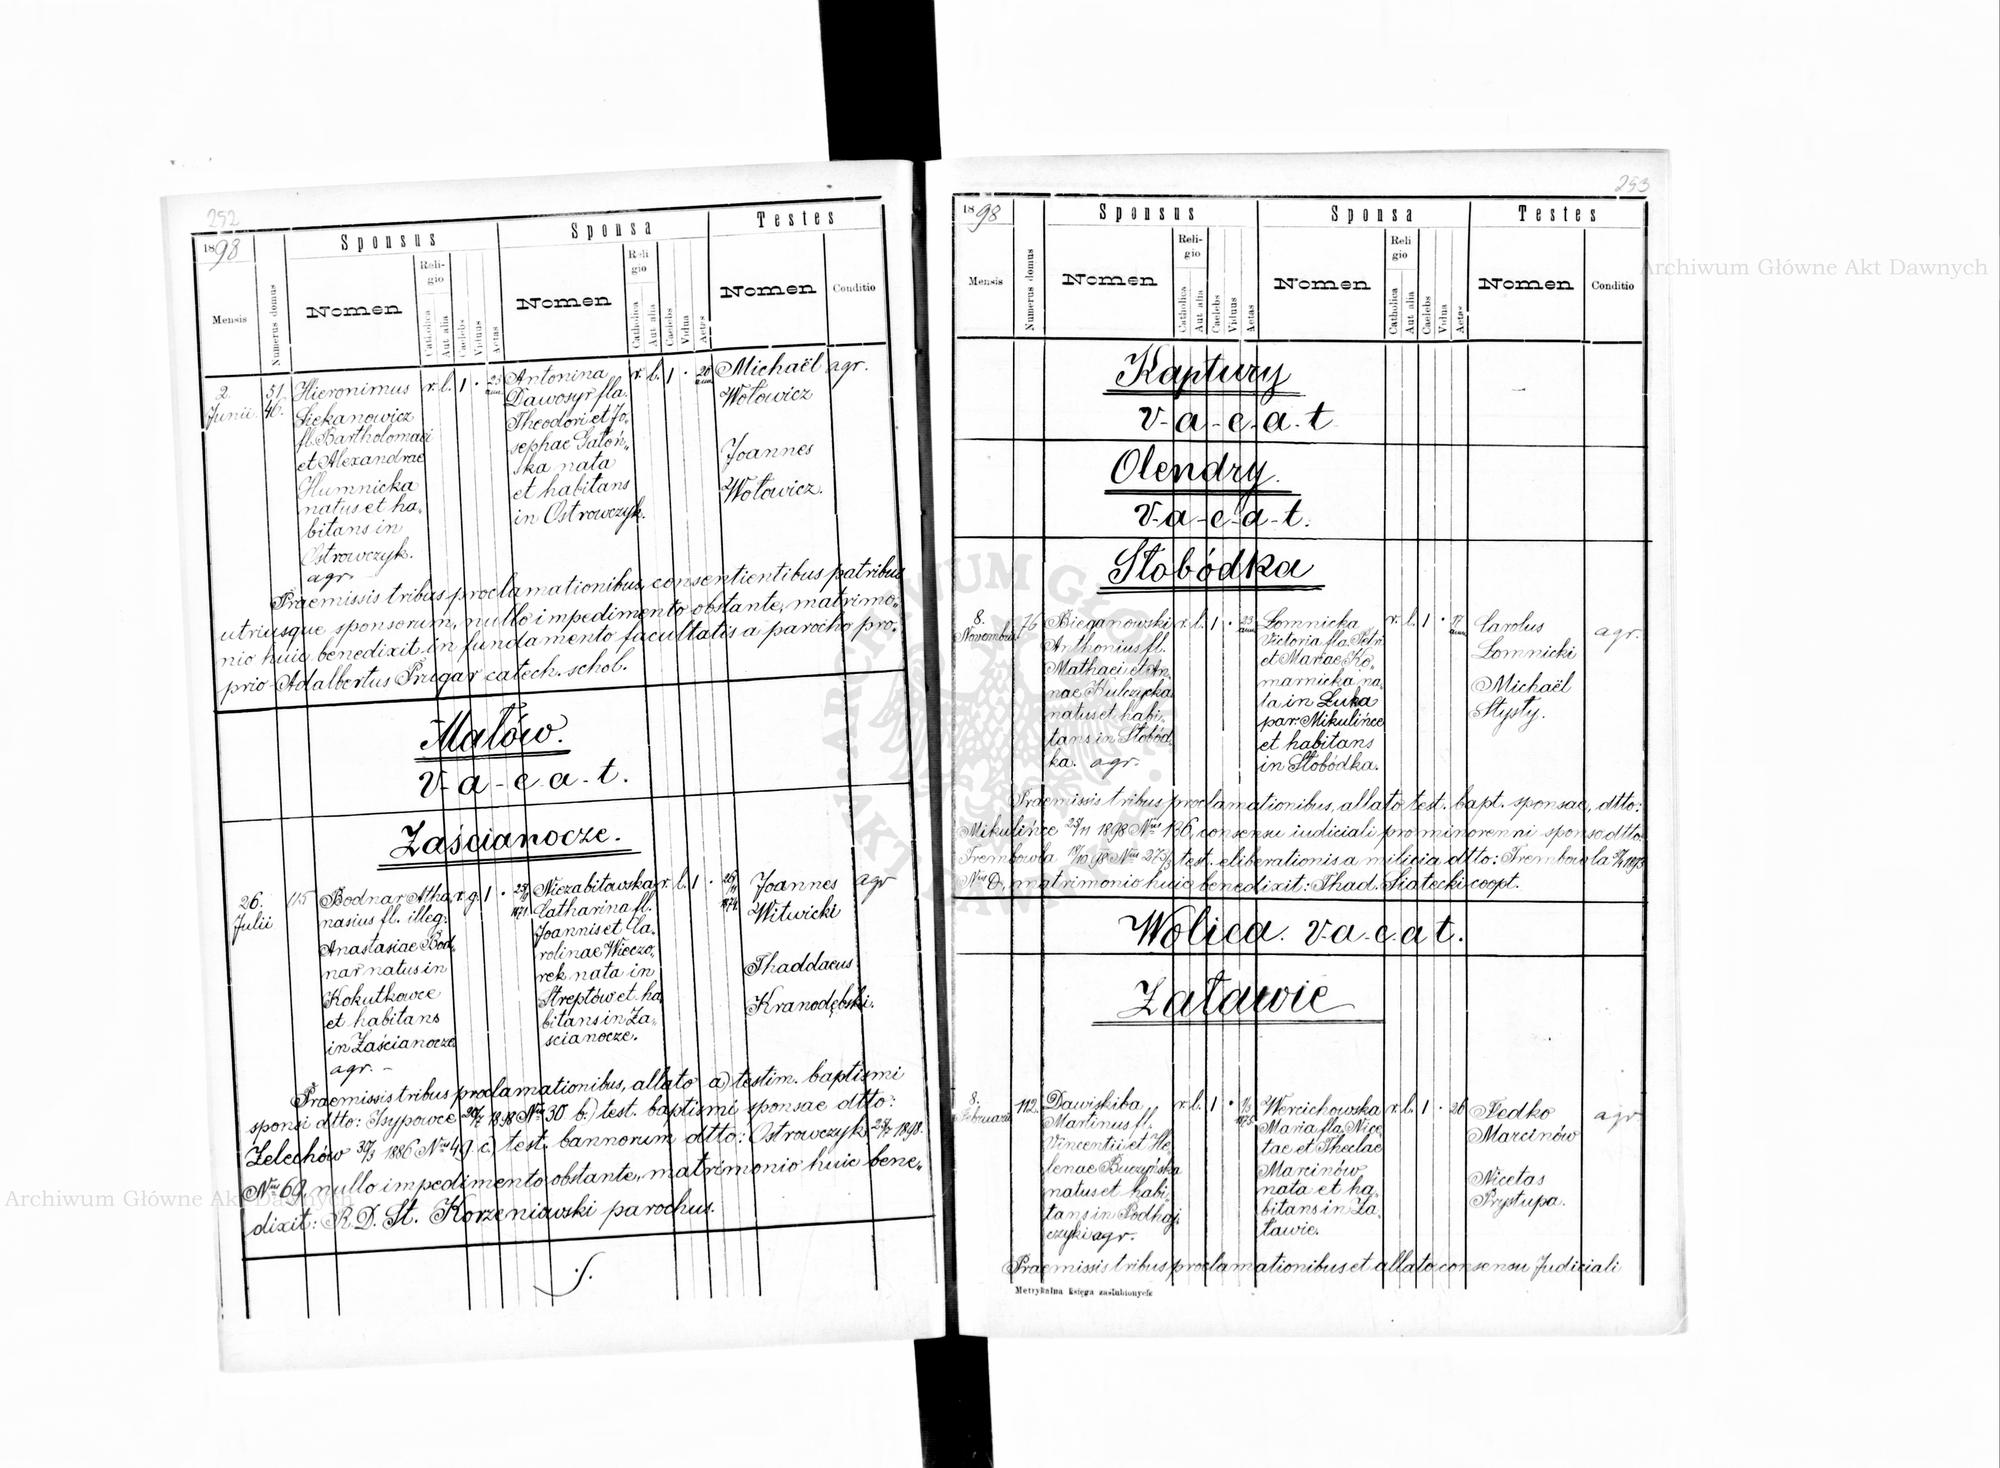 252
1898
Sponsus
Sponsa
Testes
Mensis
Numerus domus
Nomen
Religio
Catholica
Aut alia
Caelebs
Viduus
Aetas
Nomen
Religio
Catholica
Aut alia
Caelebs
Vidua
Aetas
Nomen
Conditio
2
Junii
51
46.
Hieronimus
Siekanowicz
fl. Bartholomaei
et Alexandrae
Humnicka
natus et ha-
bitans in
Ostrowczyk.
agr.
r. l. 1 · 23 ann.
Antonina
Dawosyr fla.
Theodori et Jo-
sephae Satoń-
ska nata
et habitans
in Ostrowczyk.
r. l. 1 · 20 ann.
Michaël
Wołowicz
Joannes
Wołowicz.
agr.
Praemissis tribus proclamationibus, consentientibus patribus
utriusque sponsorum, nullo impedimento obstante, matrimo-
nio huic benedixit in fundamento facultatis a parocho pro-
prio Adalbertus Prugar catech. schol.
Małów.
v-a-c-a-t.
Zaścianocze.
26.
Julii
115
Bodnar Atha-
nasius fl. illeg.
Anastasiae Bod-
nar natus in
Kokutkowce
et habitans
in Zaścianocze
agr. -
r. g. 1 ·
1871
Niezabitowska
Catharina fl.
Joannis et Ca-
rolinae Wieczo-
rek nata in
Streptów et ha-
bitans in Za-
scianocze.
r. l. 1 ·
Joannes
Witwicki
Thaddaeus
Kranodębski.
agr
Praemissis tribus proclamationibus, allato a) testim. baptismi
sponsi dtto: Isypowce 1898 Nrus 30 b.) test. baptismi sponsae dtto:
Żelechów 30/3 1886 Nrus 49 c.) test. bannorum dtto: Ostrowczyk 1898
Nrus 69, nullo impedimento obstante, matrimonio huic bene-
dixit: R. D. St. Korzeniowski parochus.
253
1898
Sponsus
Sponsa
Testes
Mensis
Numerus domus
Nomen
Religio
Catholica
Aut alia
Caelebs
Viduus
Aetas
Nomen
Religio
Catholica
Aut alia
Caelebs
Vidua
Aetas
Nomen
Conditio
Kaptury
v-a-c-a-t
Olendry.
v-a-c-a-t.
Słobódka
8.
Novembris
76
Bieganowski
Anthonius fl.
Mathaei et An-
nae Kulczycka
natus et habi-
tans in Słobód-
ka. agr.
r. l. 1 · 23 ann.
Łomnicka
Victoria fla. Petri
et Mariae Ko-
marnicka na-
ta in Łuka
par. Mikulińce
et habitans
in Słobódka.
r. l. 1 · 17 ann.
Carolus
Łomnicki
Michaël
Stysły.
agr.
Praemissis tribus proclamationibus, allato test. bapt. sponsae, dtto:
Mikulińce 1898 Nrus 136, consensu iudiciali pro minorenni sponso dtto.
Trembowla test. eliberationis a milicia dtto: Trembowla
matrimonio huic benedixit: Thad. Siatecki coopt.
Wolica. v-a-c-a-t.
Załawie
8.
Februarii
112.
Dawiskiba
Martinus fl.
Vincentii et He-
lenae Buczyńska
natus et habi-
tans in Podhaj-
czyki agr.
r. l. 1 ·
1875
Wercichowska
Maria fla. Nice-
tae et Theclae
Marcinów
nata et ha-
bitans in Za-
ławie.
r. l. 1 · 26
Fedko
Marcinów
Nicetas
Prystupa.
agr
Praemissis tribus proclamationibus et allato consensu Judiciali
Metrykalna księga zaslubionych
Archiwum Główne Akt Dawnych
Archiwum Główne Akt Dawnych
ARCHIWUM GŁÓWNE AKT DAWNYCH